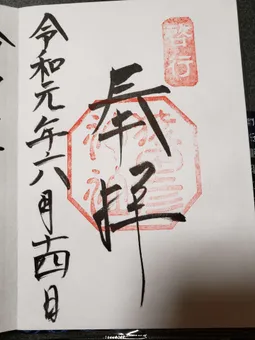 啓行
奉拝
令和元年六月十四日